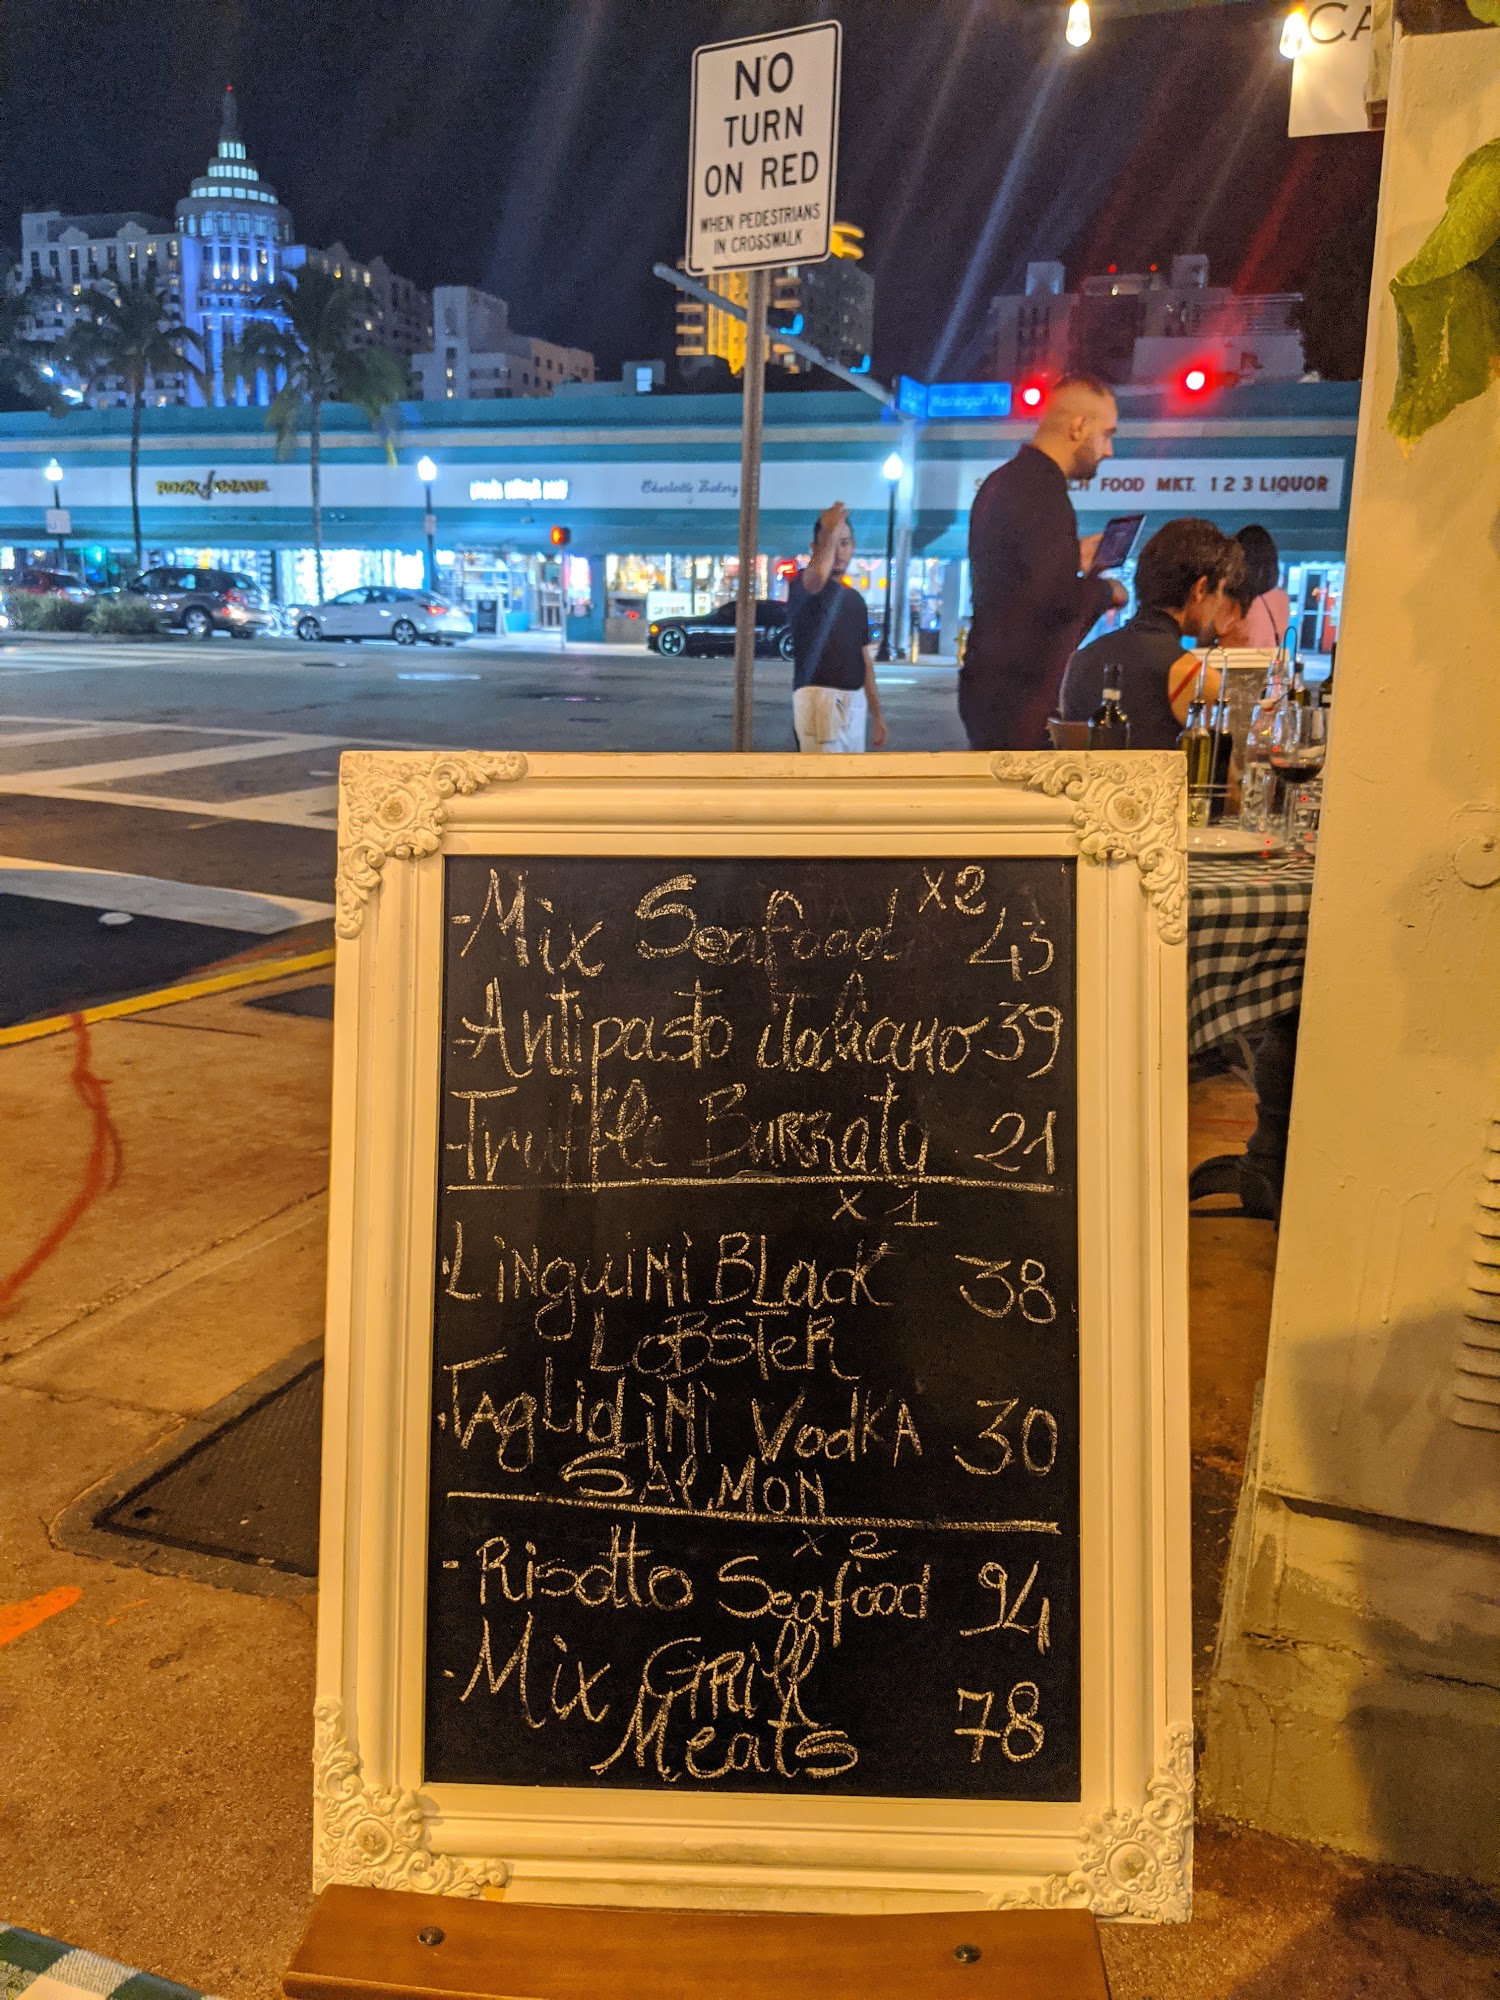 CA
NO
TURN
ON RED
WHEN PEDESTRIANS
IN CROSSWALK
Washington Av
Charlotte Bakery
CH FOOD MKT. 1 2 3 LIQUOR
-Mix Seafood x2 43
-Antipasto italiano 39
-Truffle Burrata 21
x 1
.Linguini BLack 38
LOBSTER
.TAgLioLiNi VodKA 30
SALMON
x 2
-Risotto Seafood 94
.Mix GRill
Meats 78